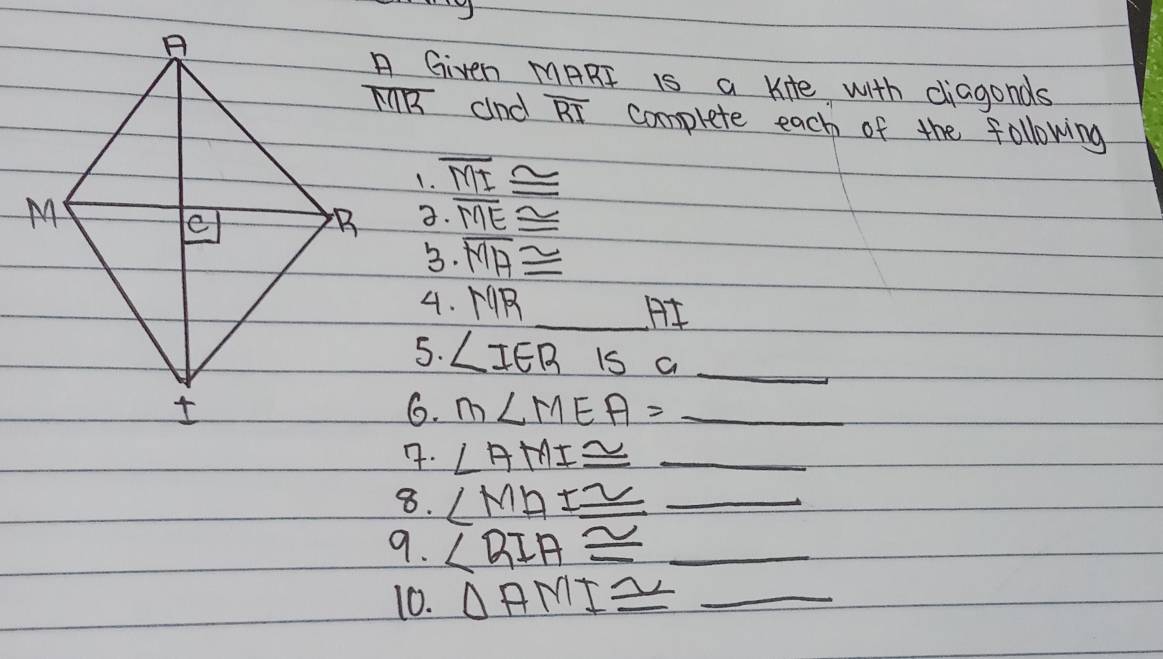 A
M
e
R
I
A Given MARI is a kite with diagonds
MR and RI complete each of the following
1. MI ≅
2. ME ≅
3. MA ≅
4. MR ______ AI
5. ∠IER is a ______
6. m∠MEA = ______
7. ∠AMI ≅ ______
8. ∠MAI ≅ ______
9. ∠RIA ≅ ______
10. ΔAMI ≅ ______